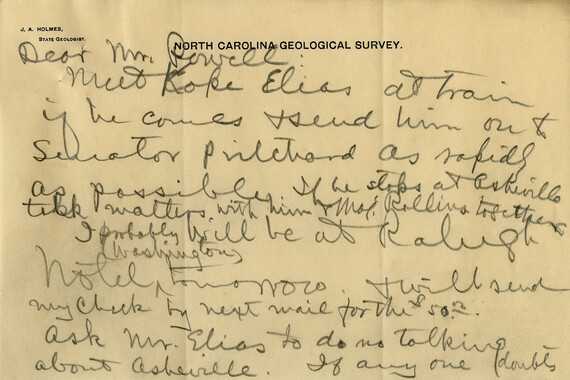 J. A. HOLMES,
STATE GEOLOGIST.
NORTH CAROLINA GEOLOGICAL SURVEY.
Dear Mr. Powell:
Meet Kope Elias at train
if he comes & send him on to
Senator Pritchard as rapidly
as possible. If he stops at Asheville
talk matters with him & Maj. Rollins together
I probably will be at Raleigh
(Washington)
Hotel, tomorrow. & will send
my check by next mail for the $50.
Ask Mr. Elias to do no talking
about Asheville. If any one doubts